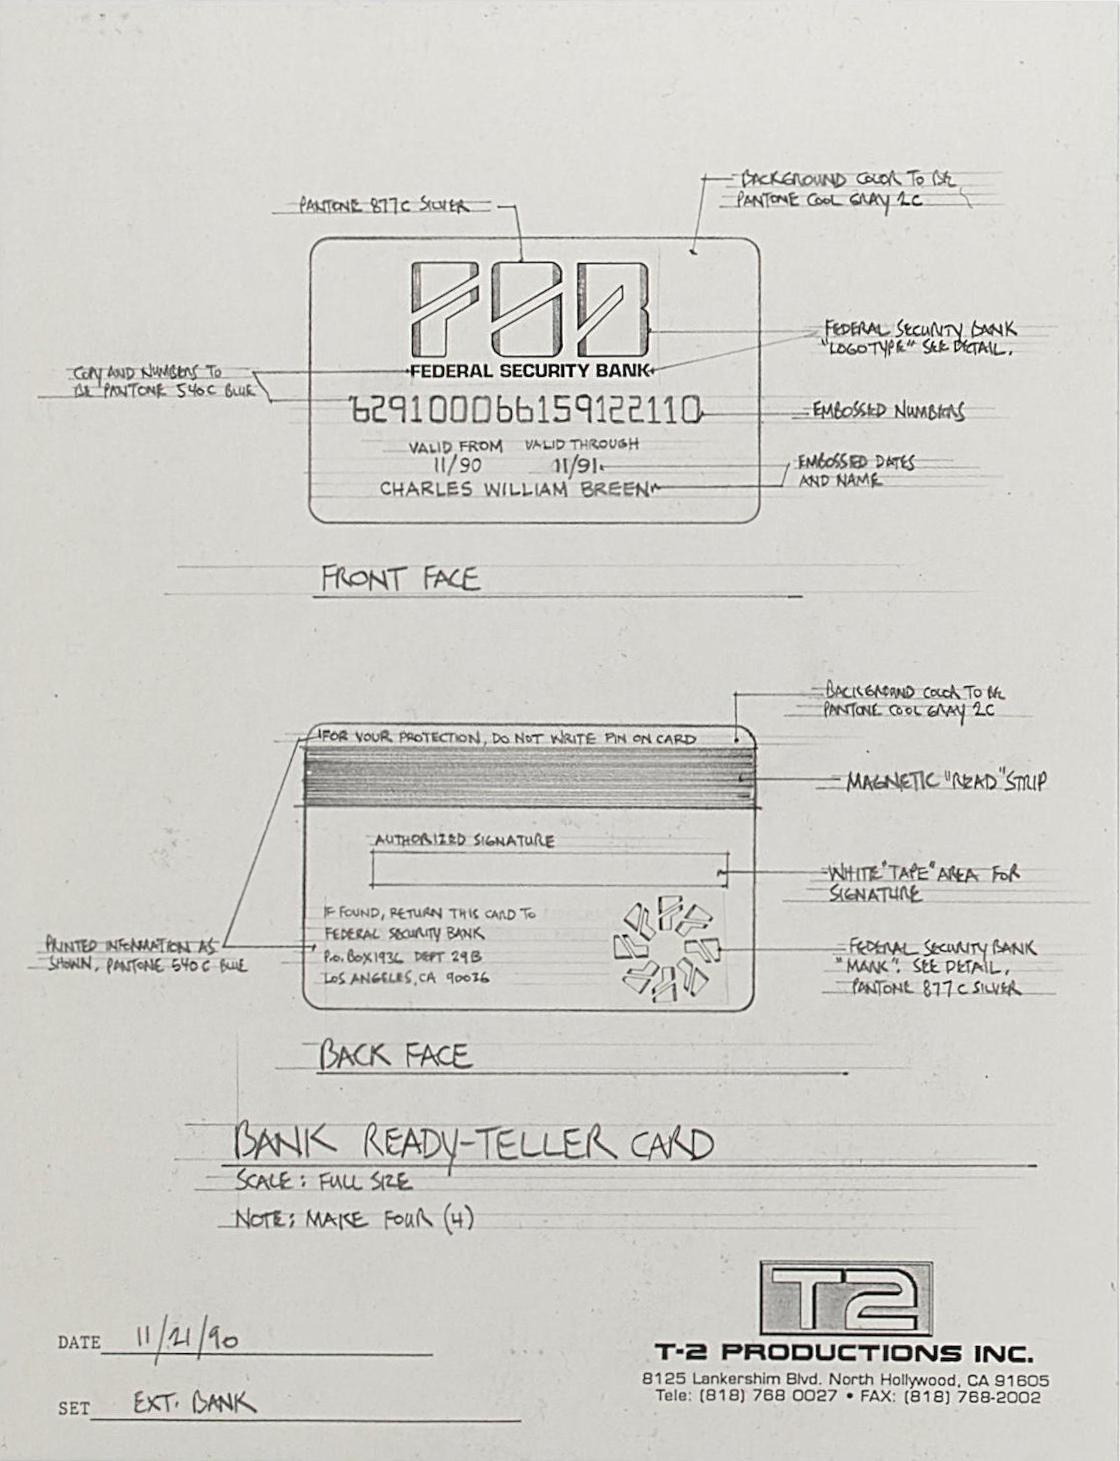 BACKGROUND COLOR TO BE
PANTONE COOL GRAY 2C
PANTONE 877C SILVER
FSB
FEDERAL SECURITY BANK
"LOGOTYPE" SEE DETAIL.
COPY AND NUMBERS TO
BE PANTONE 540C BLUE
FEDERAL SECURITY BANK
629100066159122110
EMBOSSED NUMBERS
VALID FROM VALID THROUGH
11/90 11/91
EMBOSSED DATES
AND NAME
CHARLES WILLIAM BREEN
FRONT FACE
BACKGROUND COLOR TO BE
PANTONE COOL GRAY 2C
FOR YOUR PROTECTION, DO NOT WRITE PIN ON CARD
MAGNETIC "READ" STRIP
AUTHORIZED SIGNATURE
WHITE "TAPE" AREA FOR
SIGNATURE
IF FOUND, RETURN THIS CARD TO
FEDERAL SECURITY BANK
P.O. BOX 1936 DEPT 29B
LOS ANGELES, CA 90036
PRINTED INFORMATION AS
SHOWN, PANTONE 540 C BLUE
FEDERAL SECURITY BANK
"MARK". SEE DETAIL,
PANTONE 877 C SILVER
BACK FACE
BANK READY-TELLER CARD
SCALE: FULL SIZE
NOTE: MAKE FOUR (4)
T2
T-2 PRODUCTIONS INC.
8125 Lankershim Blvd. North Hollywood, CA 91605
Tele: (818) 768 0027 • FAX: (818) 768-2002
DATE 11/21/90
SET EXT. BANK